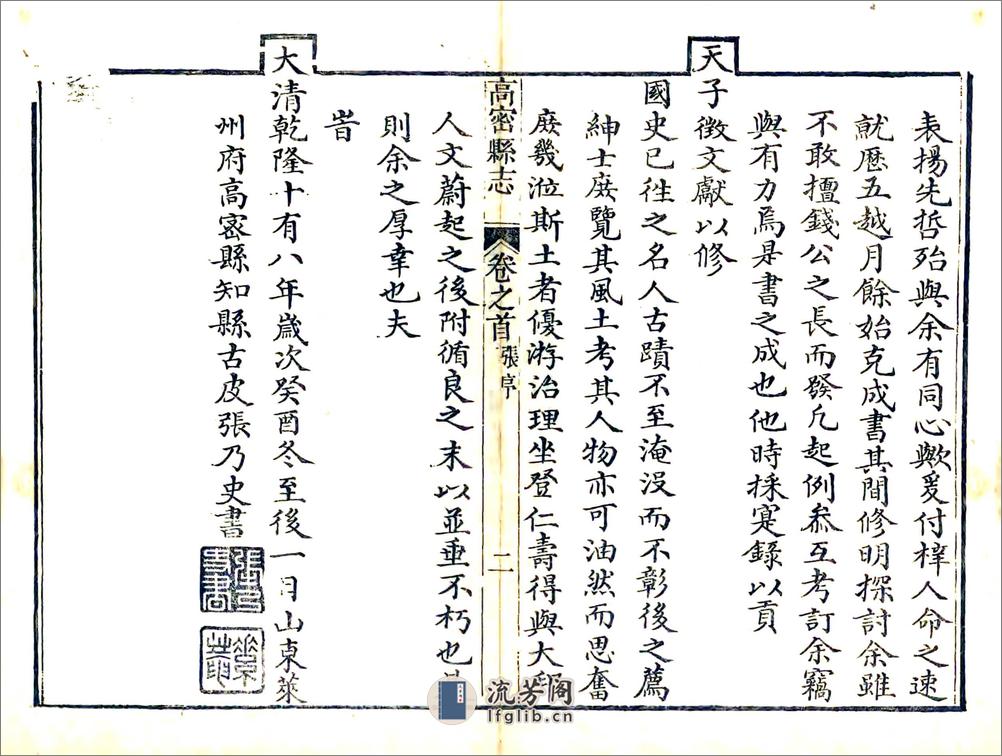 表揚先哲殆與余有同心歟爰付梓人命之速
就歷五越月餘始克成書其間修明探討余雖
不敢擅錢公之長而發凡起例叅互考訂余竊
與有力焉是書之成也他時採寔錄以貢
天子徵文獻以修
國史已徃之名人古蹟不至淹沒而不彰後之薦
紳士庶覽其風土考其人物亦可油然而思奮
庶幾涖斯土者優游治理坐登仁壽得與大
高密縣志
卷之首
張序
二
人文蔚起之後附循良之末以並垂不朽也
則余之厚幸也夫
旹
大清乾隆十有八年歲次癸酉冬至後一月山東萊
州府高密縣知縣古皮張乃史書
流芳阁
lfglib.cn